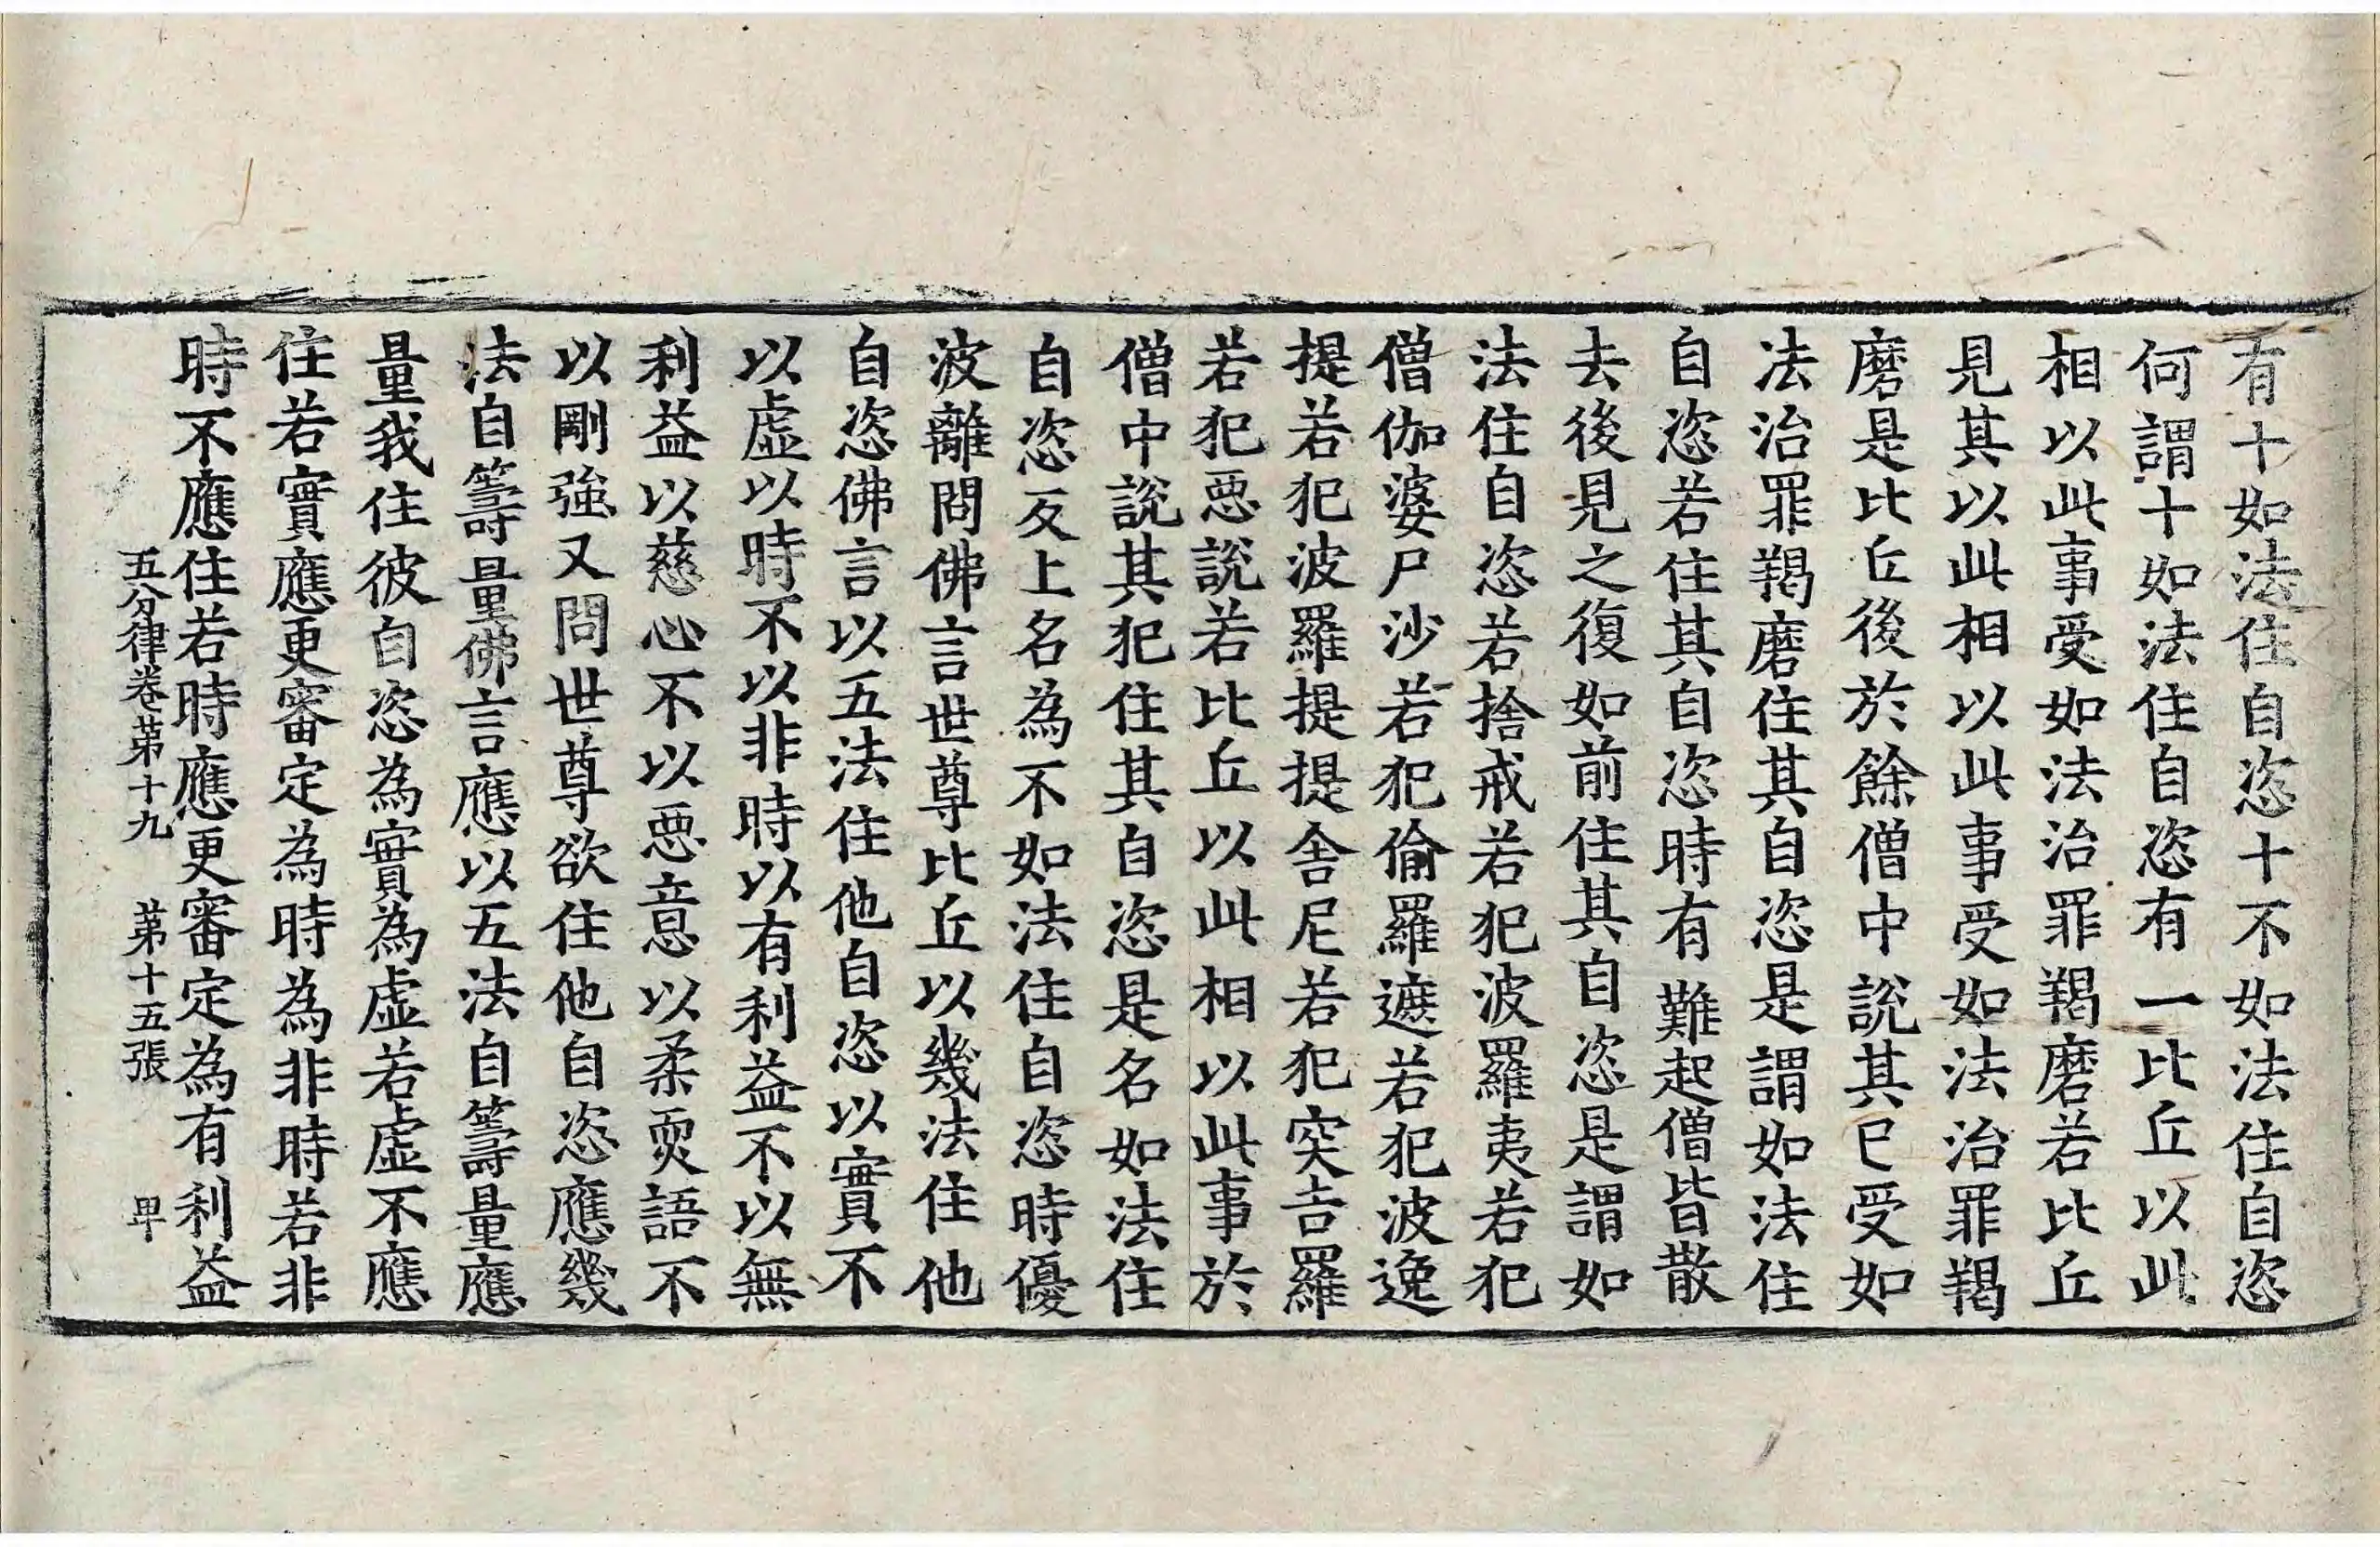 有十如法住自恣十不如法住自恣
何謂十如法住自恣有一比丘以此
相以此事受如法治罪羯磨若比丘
見其以此相以此事受如法治罪羯
磨是比丘後於餘僧中說其已受如
法治罪羯磨住其自恣是謂如法住
自恣若住其自恣時有難起僧皆散
去後見之復如前住其自恣是謂如
法住自恣若捨戒若犯波羅夷若犯
僧伽婆尸沙若犯偷羅遮若犯波逸
提若犯波羅提提舍尼若犯突吉羅
若犯惡說若比丘以此相以此事於
僧中說其犯住其自恣是名如法住
自恣反上名為不如法住自恣時優
波離問佛言世尊比丘以幾法住他
自恣佛言以五法住他自恣以實不
以虛以時不以非時以有利益不以無
利益以慈心不以惡意以柔耎語不
以剛強又問世尊欲住他自恣應幾
法自籌量佛言應以五法自籌量應
量我住彼自恣為實為虛若虛不應
住若實應更審定為時為非時若非
時不應住若時應更審定為有利益
五分律卷第十九 第十五張 卑